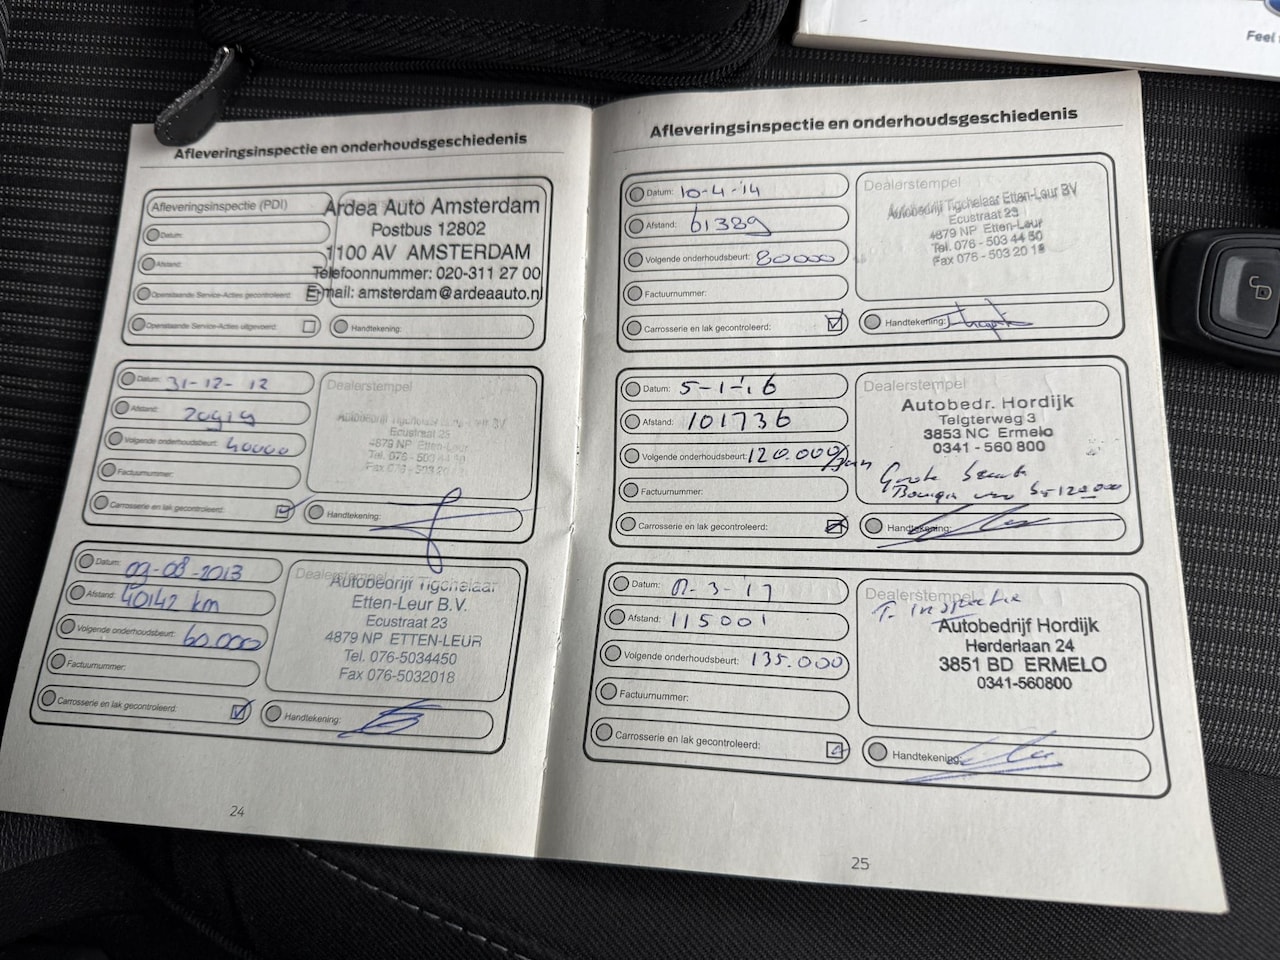 Feel
Afleveringsinspectie en onderhoudsgeschiedenis
Afleveringsinspectie (PDI)
Datum:
Afstand:
Openstaande Service-Acties gecontroleerd:
Openstaande Service-Acties uitgevoerd:
Ardea Auto Amsterdam
Postbus 12802
1100 AV AMSTERDAM
Telefoonnummer: 020-311 27 00
E-mail: amsterdam@ardeaauto.nl
Handtekening:
Datum: 31-12-12
Afstand:
Volgende onderhoudsbeurt: 40000
Factuurnummer:
Carrosserie en lak gecontroleerd:
Dealerstempel
Autobedrijf Tigchelaar Etten-Leur BV
Ecustraat 23
4879 NP Etten-Leur
Tel. 076 - 503 44 50
Fax 076 - 503 20 18
Handtekening:
Datum: 09-08-2013
Afstand: 40142 km
Volgende onderhoudsbeurt: 60.000
Factuurnummer:
Carrosserie en lak gecontroleerd:
Dealerstempel
Autobedrijf Tigchelaar
Etten-Leur B.V.
Ecustraat 23
4879 NP ETTEN-LEUR
Tel. 076-5034450
Fax 076-5032018
Handtekening:
24
Afleveringsinspectie en onderhoudsgeschiedenis
Datum: 10-4-'14
Afstand: 61389
Volgende onderhoudsbeurt: 80000
Factuurnummer:
Carrosserie en lak gecontroleerd:
Dealerstempel
Autobedrijf Tigchelaar Etten-Leur BV
Ecustraat 23
4879 NP Etten-Leur
Tel. 076 - 503 44 50
Fax 076 - 503 20 18
Handtekening:
Datum: 5-1-'16
Afstand: 101736
Volgende onderhoudsbeurt: 120.000
Factuurnummer:
Carrosserie en lak gecontroleerd:
Dealerstempel
Autobedr. Hordijk
Telgterweg 3
3853 NC Ermelo
0341 - 560 800
Grote beurt
Handtekening:
Datum: 3-'17
Afstand: 115001
Volgende onderhoudsbeurt: 135.000
Factuurnummer:
Carrosserie en lak gecontroleerd:
Dealerstempel
T. inspectie
Autobedrijf Hordijk
Herderlaan 24
3851 BD ERMELO
0341-560800
Handtekening:
25